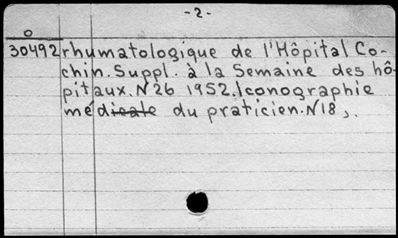 -2-
o
30492 rhumatologique de l'Hôpital Co-
chin. Suppl. à la Semaine des hô-
pitaux. N 26 1952. Iconographie
médicale du praticien. N 18,.